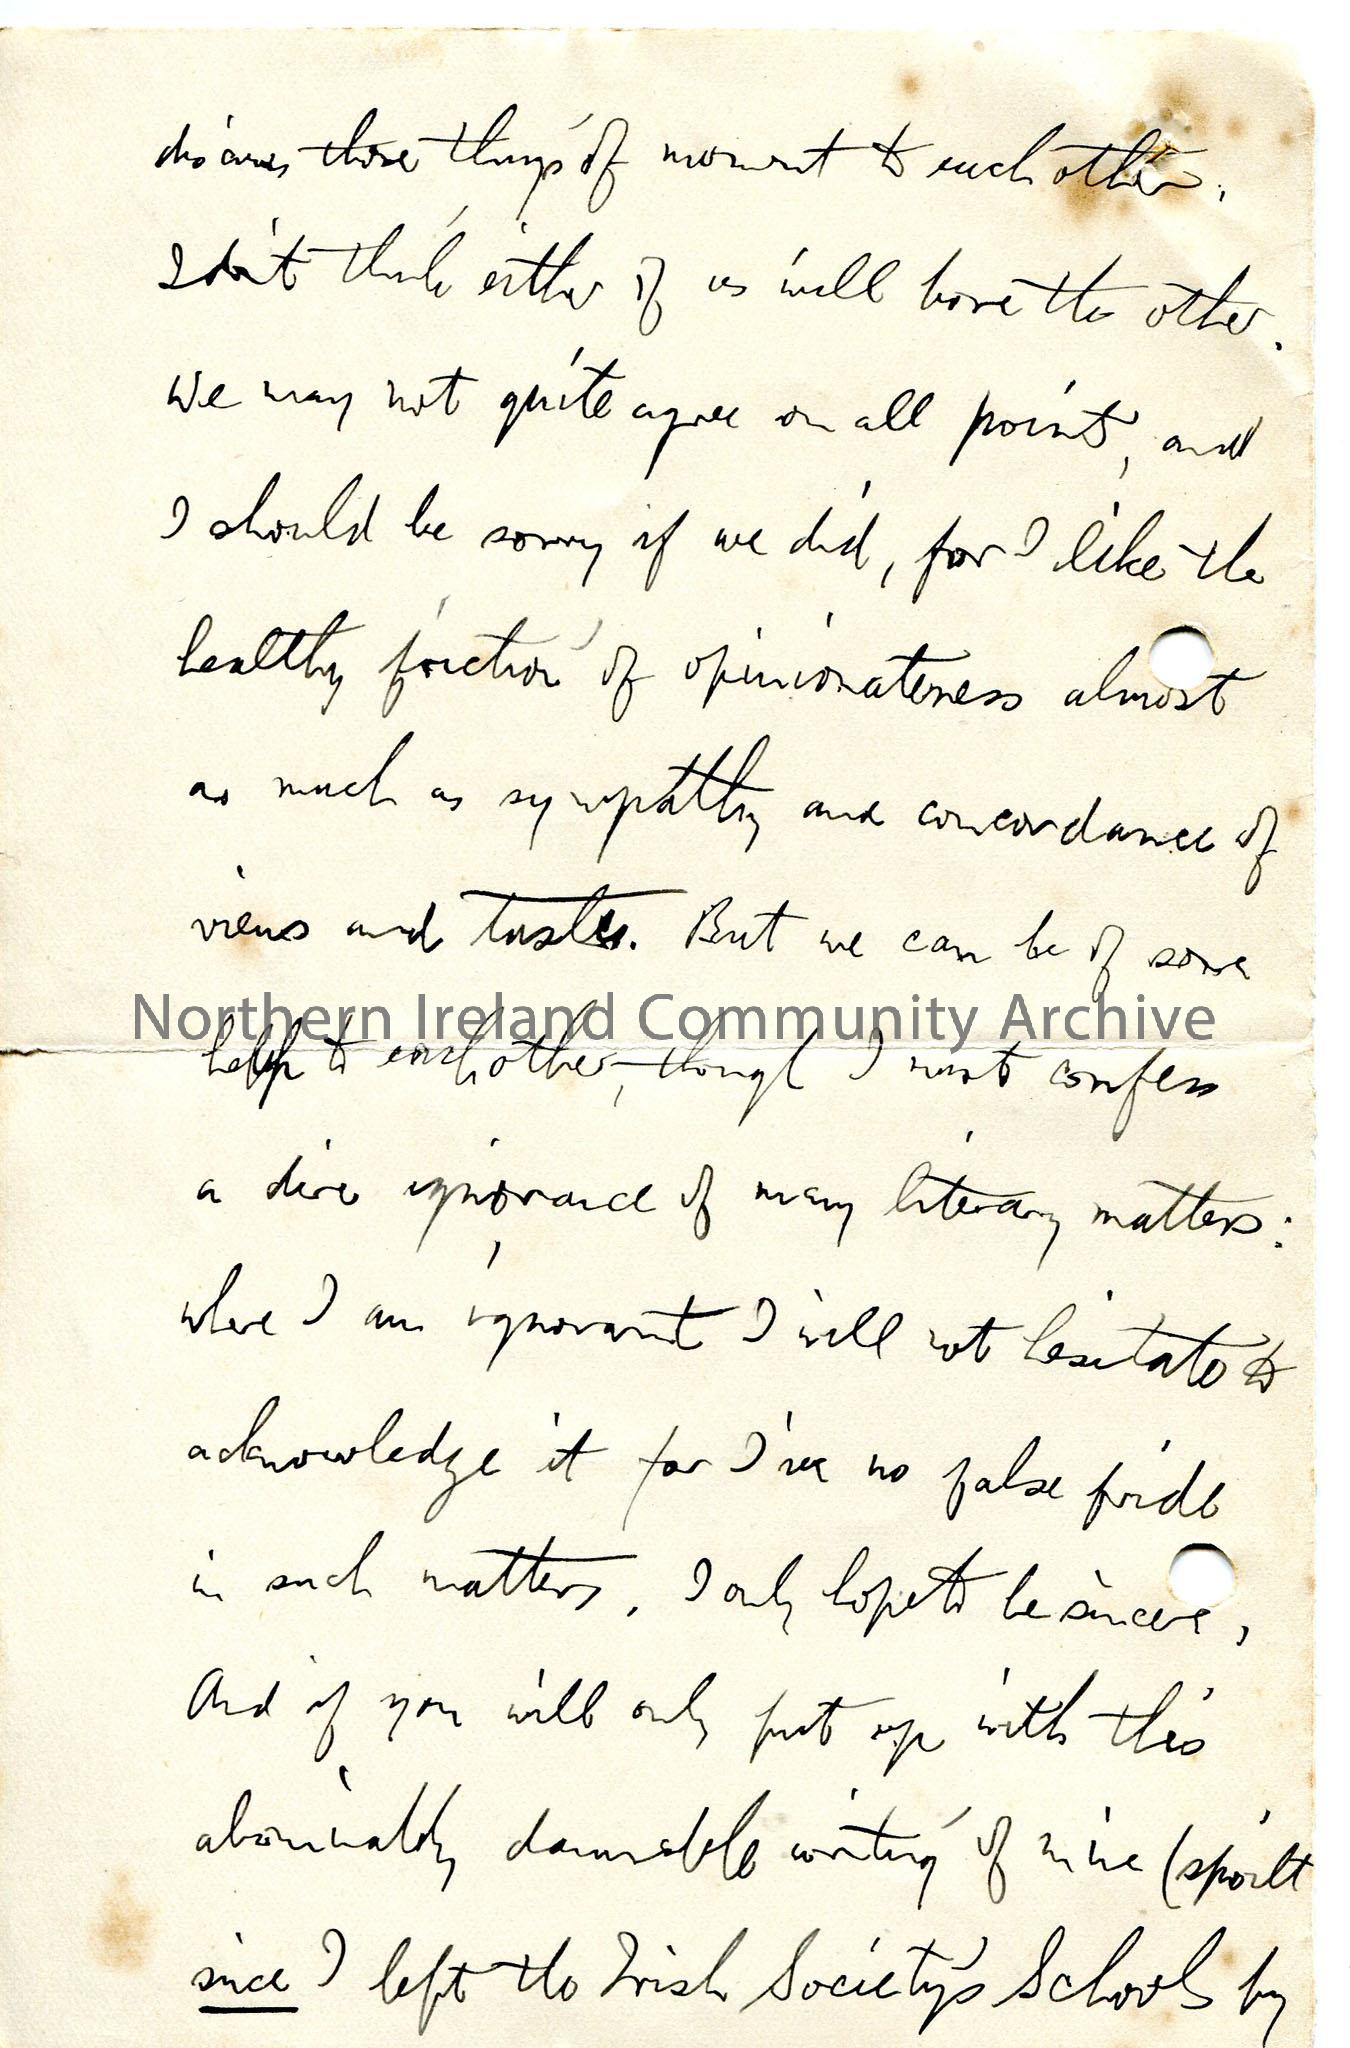 discuss those things of moment to each other.
I don't think either of us will bore the other.
We may not quite agree on all points, and
I should be sorry if we did, for I like the
healthy friction of opinionateness almost
as much as sympathy and concordance of
views and tastes. But we can be of some
Northern Ireland Community Archive
help to each other, though I must confess
a dire ignorance of many literary matters:
where I am ignorant I will not hesitate to
acknowledge it for I've no false pride
in such matters. I only hope to be sincere,
And if you will only put up with this
abominably damnable writing of mine (spoilt
since I left the Irish Society's Schools by